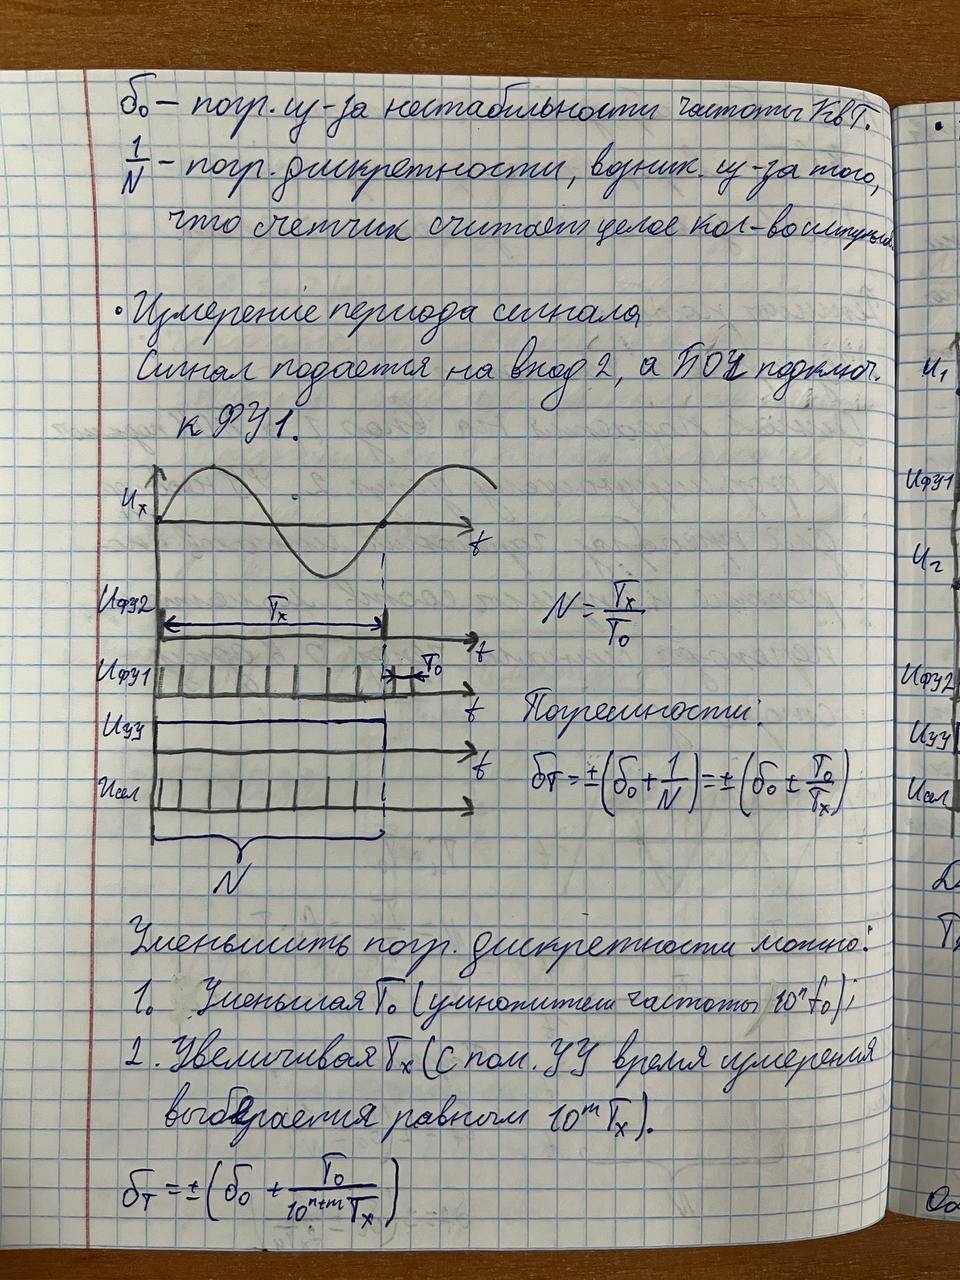 δ₀ – погр. из-за нестабильности частоты КвГ.
1/N – погр. дискретности, возник. из-за того,
что счетчик считает целое кол-во импульсов.
• Измерение периода сигнала
Сигнал подается на вход 2, а БОЧ подключ.
к ФУ1.
Uₓ
t
Uфу2
Tₓ
t
N = Tₓ/T₀
Uфу1
T₀
t
Погрешности:
Uуу
t
δT = ±(δ₀ + 1/N) = ±(δ₀ ± T₀/Tₓ)
Uсел
N
Уменьшить погр. дискретности можно:
1. Уменьшая T₀ (умножители частоты 10ⁿ f₀);
2. Увеличивая Tₓ (с пом. УУ время измерения
выбирается равным 10ᵐ Tₓ).
δT = ±(δ₀ ± T₀/(10ⁿ⁺ᵐ Tₓ))
U₁
Uфу1
U₂
Uфу2
Uуу
Uсел